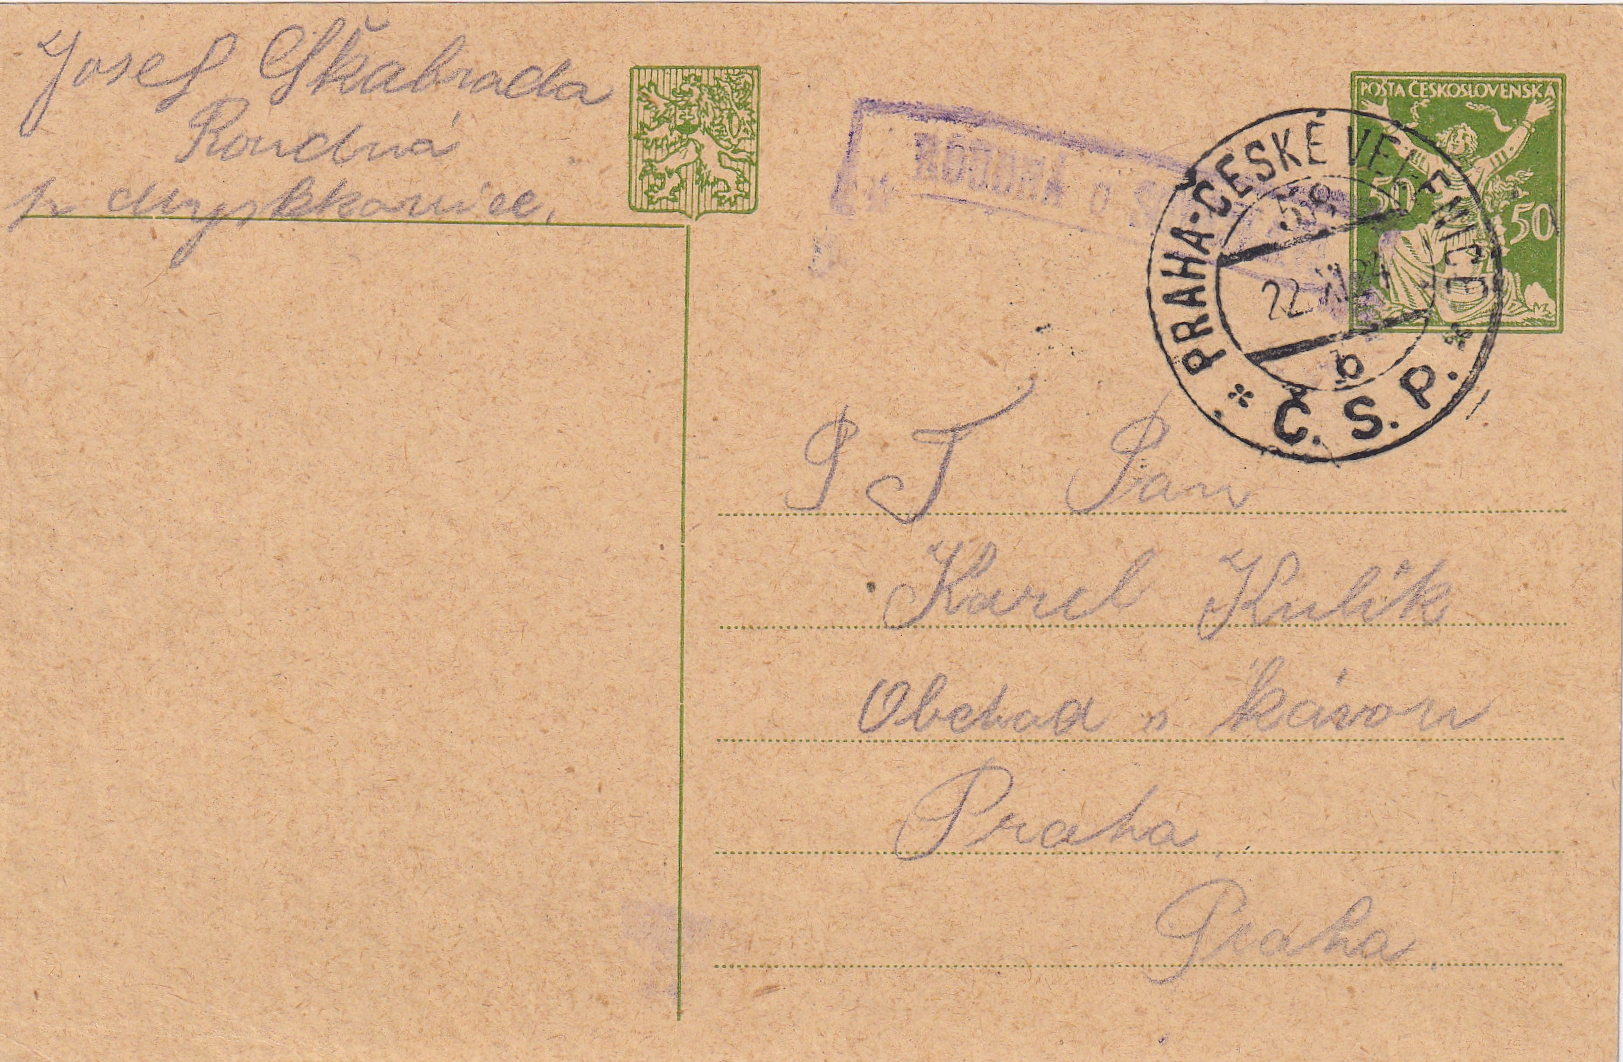 Josef Škabrada
Roudná
p.
POSTA ČESKOSLOVENSKÁ
50 50
PRAHA-ČESKÉ VELENICE
58
22. XI. 24
b
* Č. S. P. *
P T Pan
Karel Kulík
Obchod s kávou
Praha
Praha